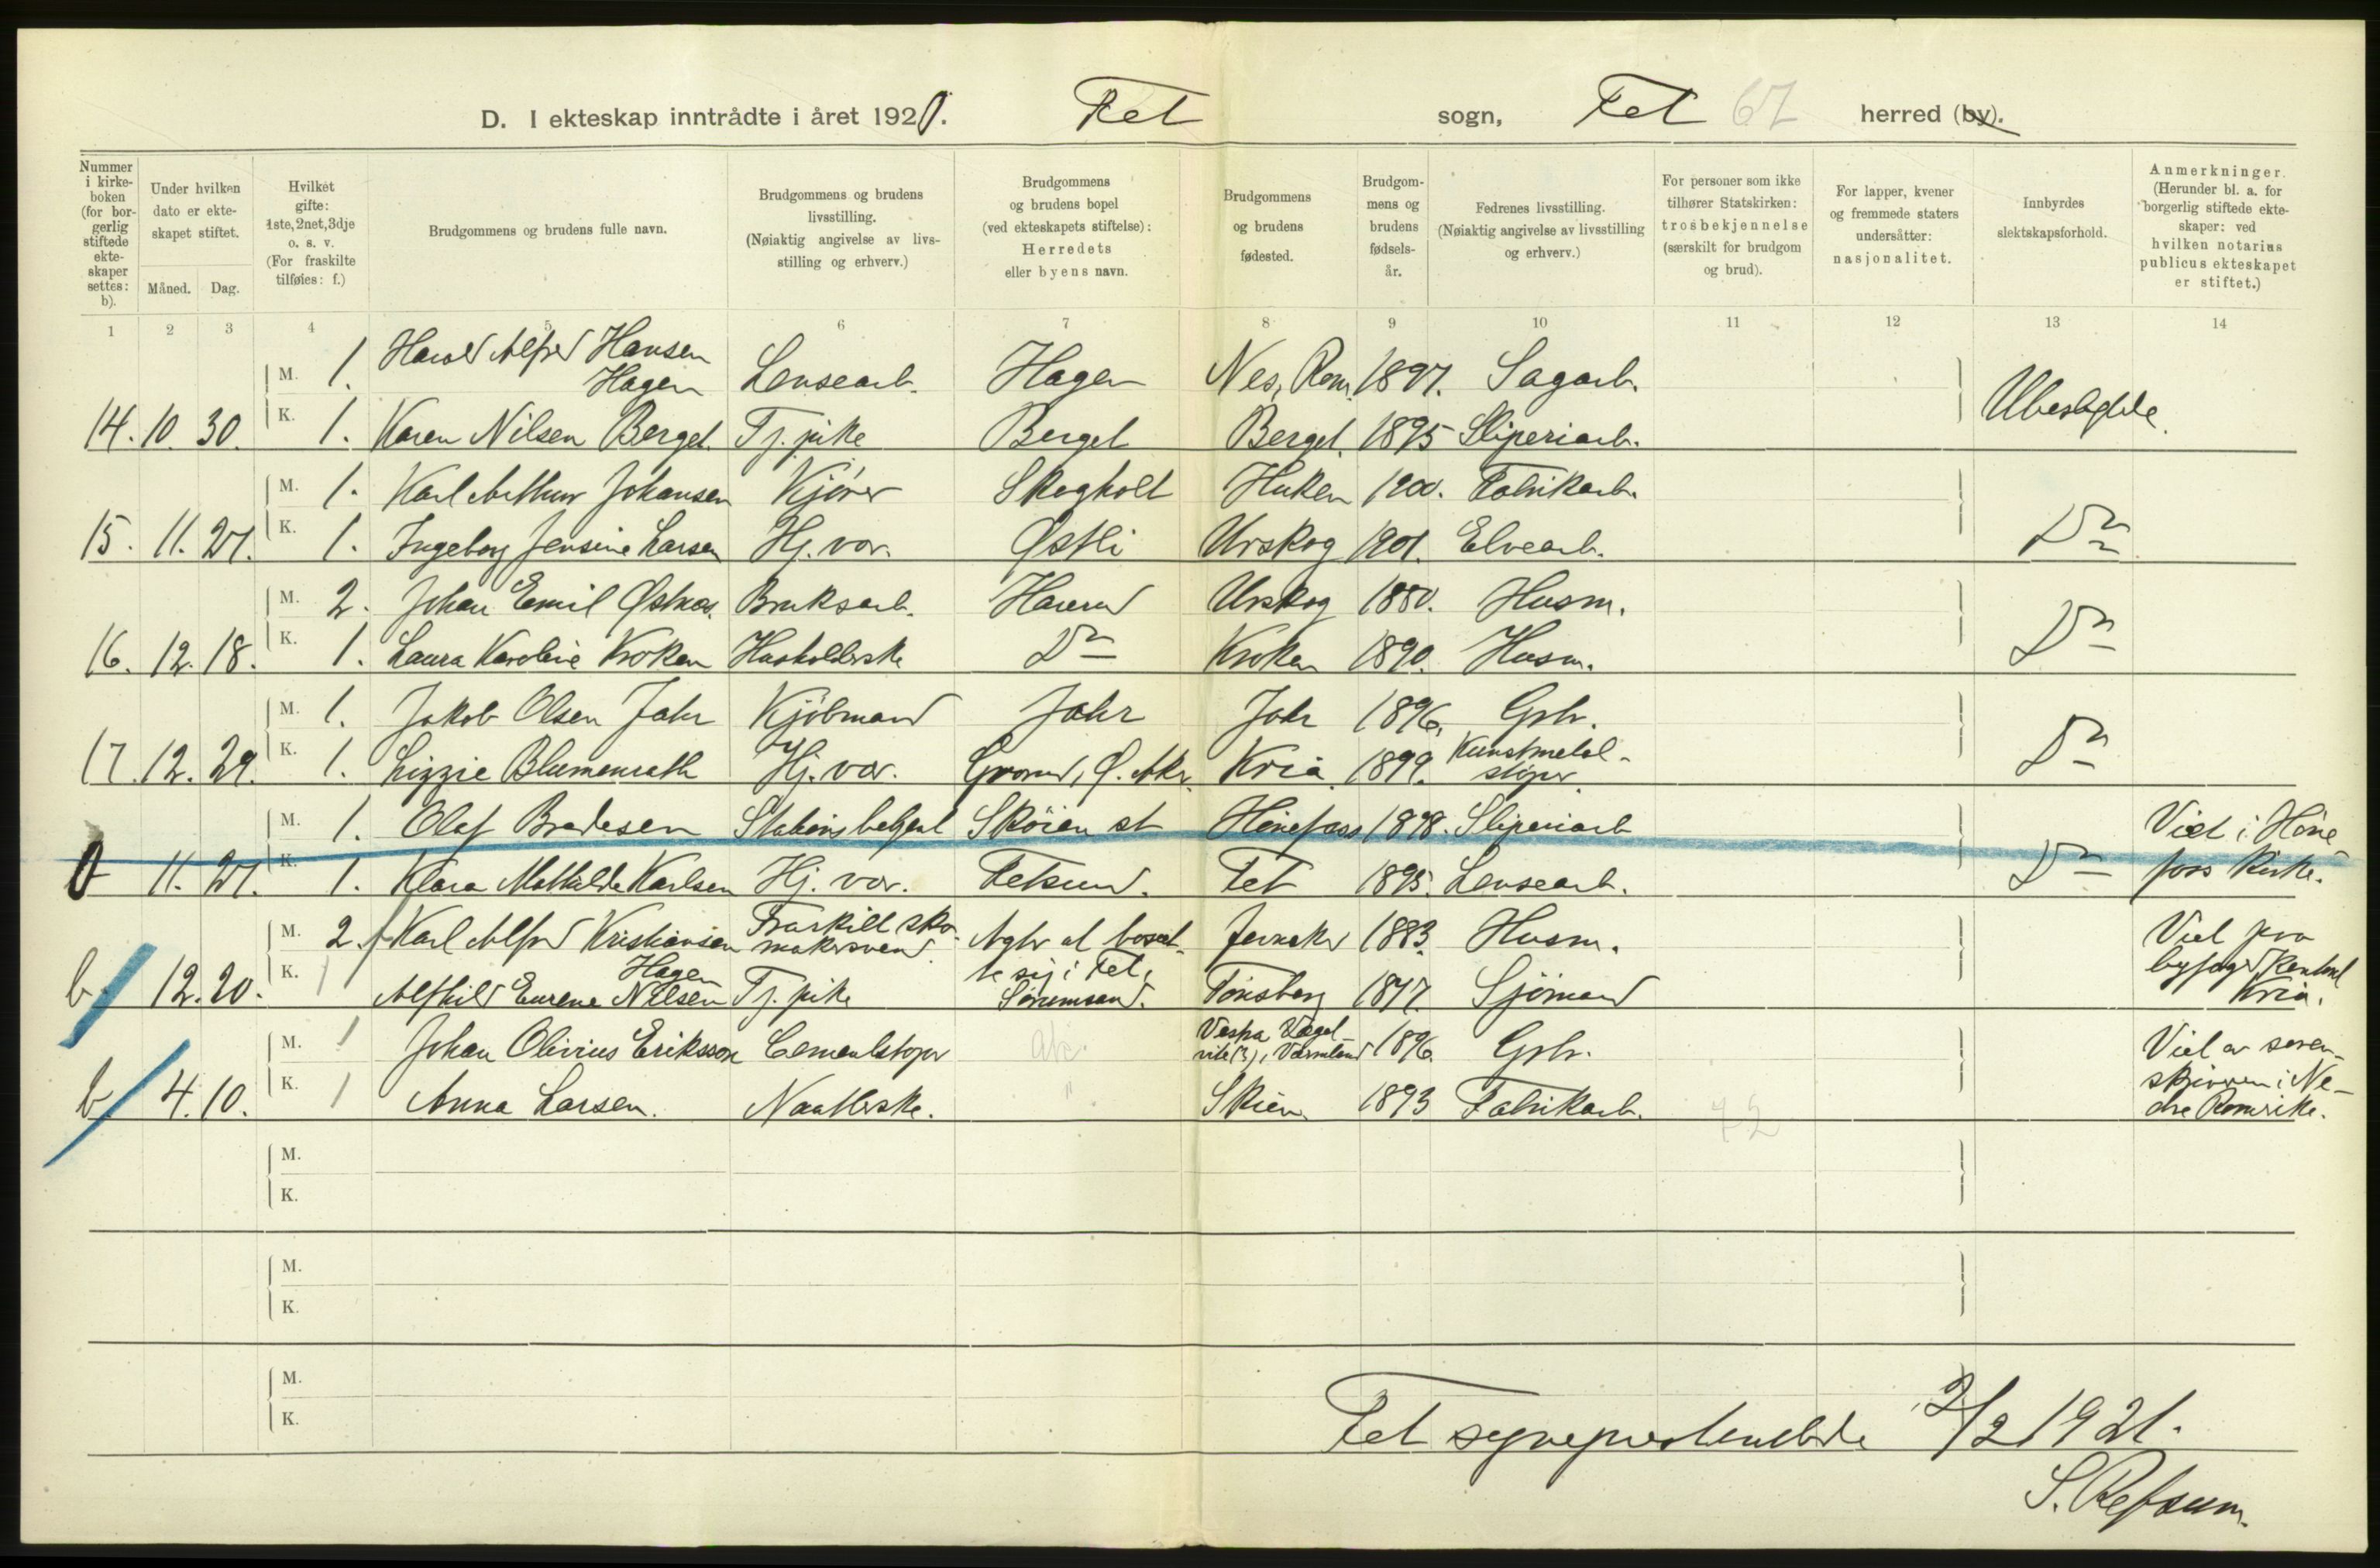 D. I ekteskap inntrådte i året 1920. Fet sogn, Fet 67 herred (by).
Nummer i kirkeboken (for borgerlig stiftede ekteskaper settes: b).
Under hvilken dato er ekteskapet stiftet.
Måned. Dag.
Hvilket gifte: 1ste, 2net, 3dje o. s. v. (For fraskilte tilføies: f.)
Brudgommens og brudens fulle navn.
Brudgommens og brudens livsstilling. (Nøiaktig angivelse av livsstilling og erhverv.)
Brudgommens og brudens bopel (ved ekteskapets stiftelse): Herredets eller byens navn.
Brudgommens og brudens fødested.
Brudgommens og brudens fødselsår.
Fedrenes livsstilling. (Nøiaktig angivelse av livsstilling og erhverv.)
For personer som ikke tilhører Statskirken: trosbekjennelse (særskilt for brudgom og brud).
For lapper, kvener og fremmede staters undersåtter: nasjonalitet.
Innbyrdes slektskapsforhold.
Anmerkninger. (Herunder bl. a. for borgerlig stiftede ekteskaper: ved hvilken notarius publicus ekteskapet er stiftet.)
1 2 3 4 5 6 7 8 9 10 11 12 13 14
M. 1. Harald Alfred Hansen Hagen Lensearb. Hagen Nes, Rom. 1897. Sagarb.
14. 10. 30. K. 1. Karen Nilsen Berget Tj.pike Berget Berget. 1895 Sliperiarb. Ubeslektede.
M. 1. Karl Arthur Johansen Kjører Skogholt Huken 1900. Fabrikarb.
15. 11. 27. K. 1. Ingeborg Jensine Larsen Hj. vær. Østli Urskog 1901. Elvearb. Do
M. 2. Johan Emil Østnes. Bruksarb. Urskog 1880. Husm.
16. 12. 18. K. 1. Laura Karoline Kroken Husholderske Do Kroken 1890. Husm. Do
M. 1. Jakob Olsen Jahr Kjøbmand Jahr Jahr 1896. Gbr.
17. 12. 29. K. 1. Lizzie Blumenrath Hj. vær. Grorud, Ø. Aker. Kria. 1899. Kunstmetalstøper. Do
M. 1. Olaf Bredesen Stationsbetjent Skøien st Hønefoss 1898. Sliperiarb
0 11. 27. K. 1. Klara Mathilde Karlsen Hj. vær. Fetsund. Fet 1895. Lensearb. Do Viet i Hønefoss kirke.
M. 2. f Karl Alfred Kristiansen Fraskilt skomakersvend. Agter at bosætte sig i Fet, Jevnaker 1883. Husm.
b. 12. 20. K. 1 Alfhild Eurene Nilsen Hagen Tj. pike Sørumsand. Tønsberg 1877. Sjømand Viet paa byfogedkontoret Kria.
M. 1 Johan Olivius Eriksson Cementstøper Vestra Vermland 1896. Gbr.
b 4. 10. K. 1 Anna Larsen. Naatlerske. " Skien 1893 Fabrikarb. 72 Viet av sorenskriveren i Nedre Romerike.
M.
K.
M.
K.
M.
K.
Fet sogneprestembede 2/2 1921.
S. Refsum.